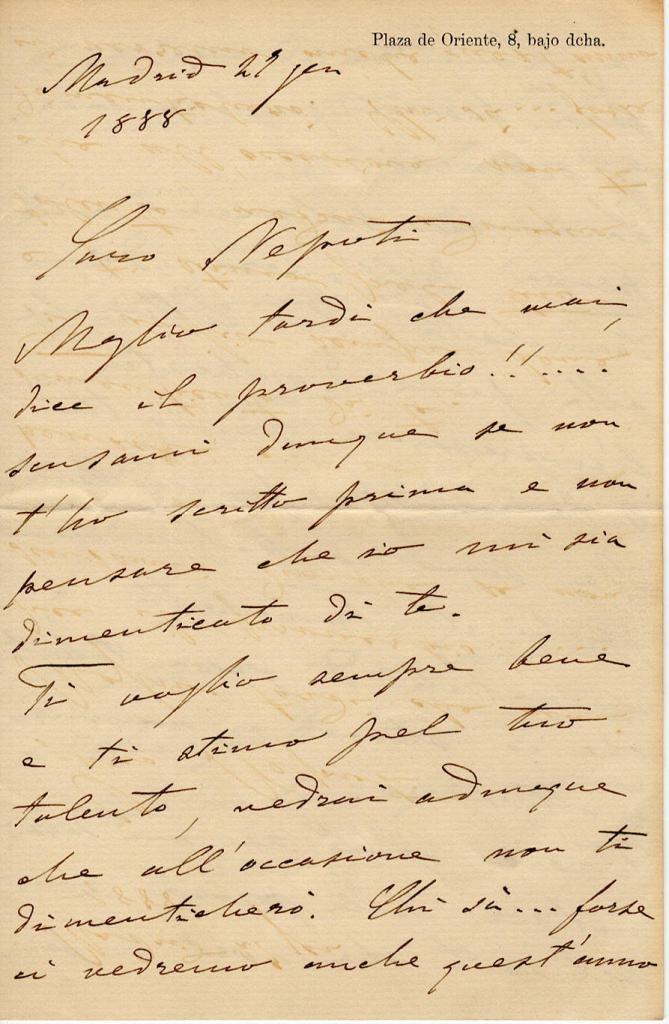 Plaza de Oriente, 8, bajo dcha.
Madrid 22 gen
1888
Caro Nepoti
Meglio tardi che mai,
dice il proverbio!!....
scusami dunque se non
t'ho scritto prima e non
pensare che io mi sia
dimenticato di te.
Ti voglio sempre bene
e ti stimo pel tuo
talento, vedrai adunque
che all'occasione non ti
dimenticherò. Chi sà... forse
ci vedremo anche quest'anno